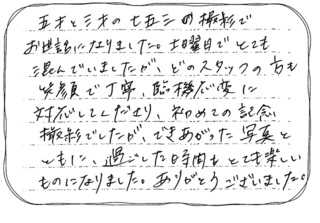 五才と三才の七五三の撮影で
お世話になりました。土曜日でとても
混んでいましたが、どのスタッフの方も
笑顔で丁寧、臨機応変に
対応してくださり、初めての記念
撮影でしたが、できあがった写真と
ともに、過ごした時間もとても楽しい
ものになりました。ありがとうございました。